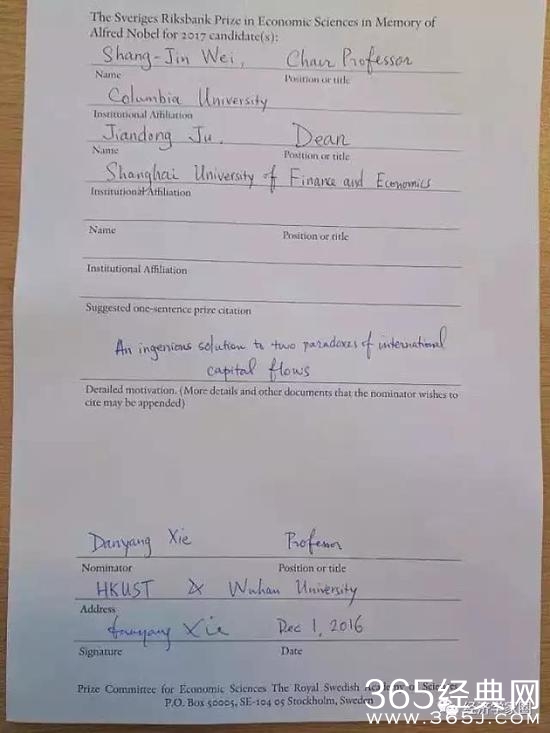 The Sveriges Riksbank Prize in Economic Sciences in Memory of
Alfred Nobel for 2017 candidate(s):
Shang-Jin Wei, Chair Professor
Name Position or title
Columbia University
Institutional Affiliation
Jiandong Ju. Dean
Name Position or title
Shanghai University of Finance and Economics
Institutional Affiliation
Name Position or title
Institutional Affiliation
Suggested one-sentence prize citation
An ingenious solution to two paradoxes of international
capital flows
Detailed motivation. (More details and other documents that the nominator wishes to
cite may be appended)
Danyang Xie Professor
Nominator Position or title
HKUST & Wuhan University
Address
Danyang Xie Dec 1, 2016
Signature Date
Prize Committee for Economic Sciences The Royal Swedish Academy of
P.O. Box 50005, SE-104 05 Stockholm, Sweden
经济学家圈
365经典网
www.365J.com